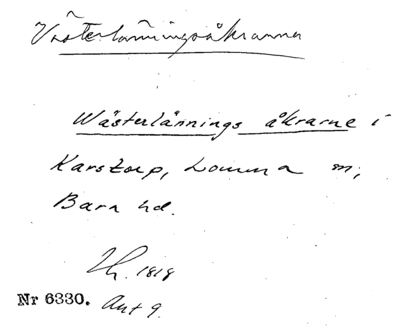 Västerlänningsåkrarna
Wästerlännings åkrarne i
Karstorp, Lomma sn;
Bara hd.
Lh. 1818
Nr 6330. Akt 9.